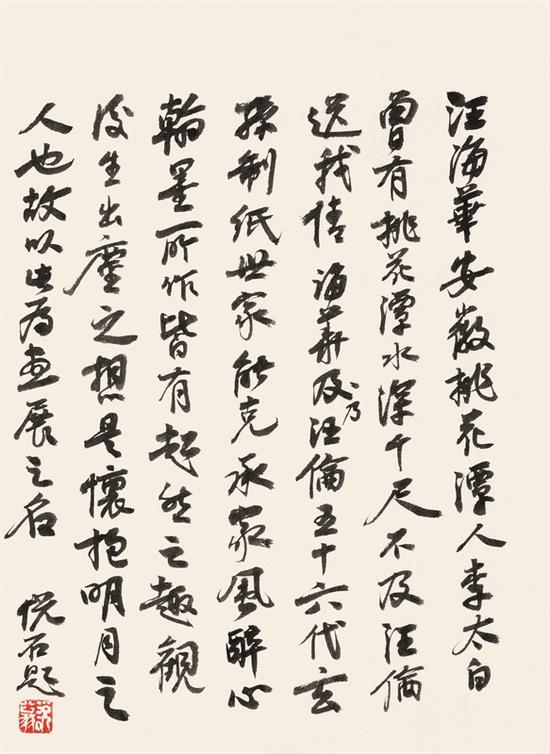 汪海華安徽桃花潭人李太白
曾有桃花潭水深千尺不及汪倫
送我情海華及乃汪倫五十六代玄
孫制紙世家能克承家風醉心
翰墨所作皆有超然之趣觀
後生出塵之想是懷抱明月之
人也故以此為畫展之名
悅石題